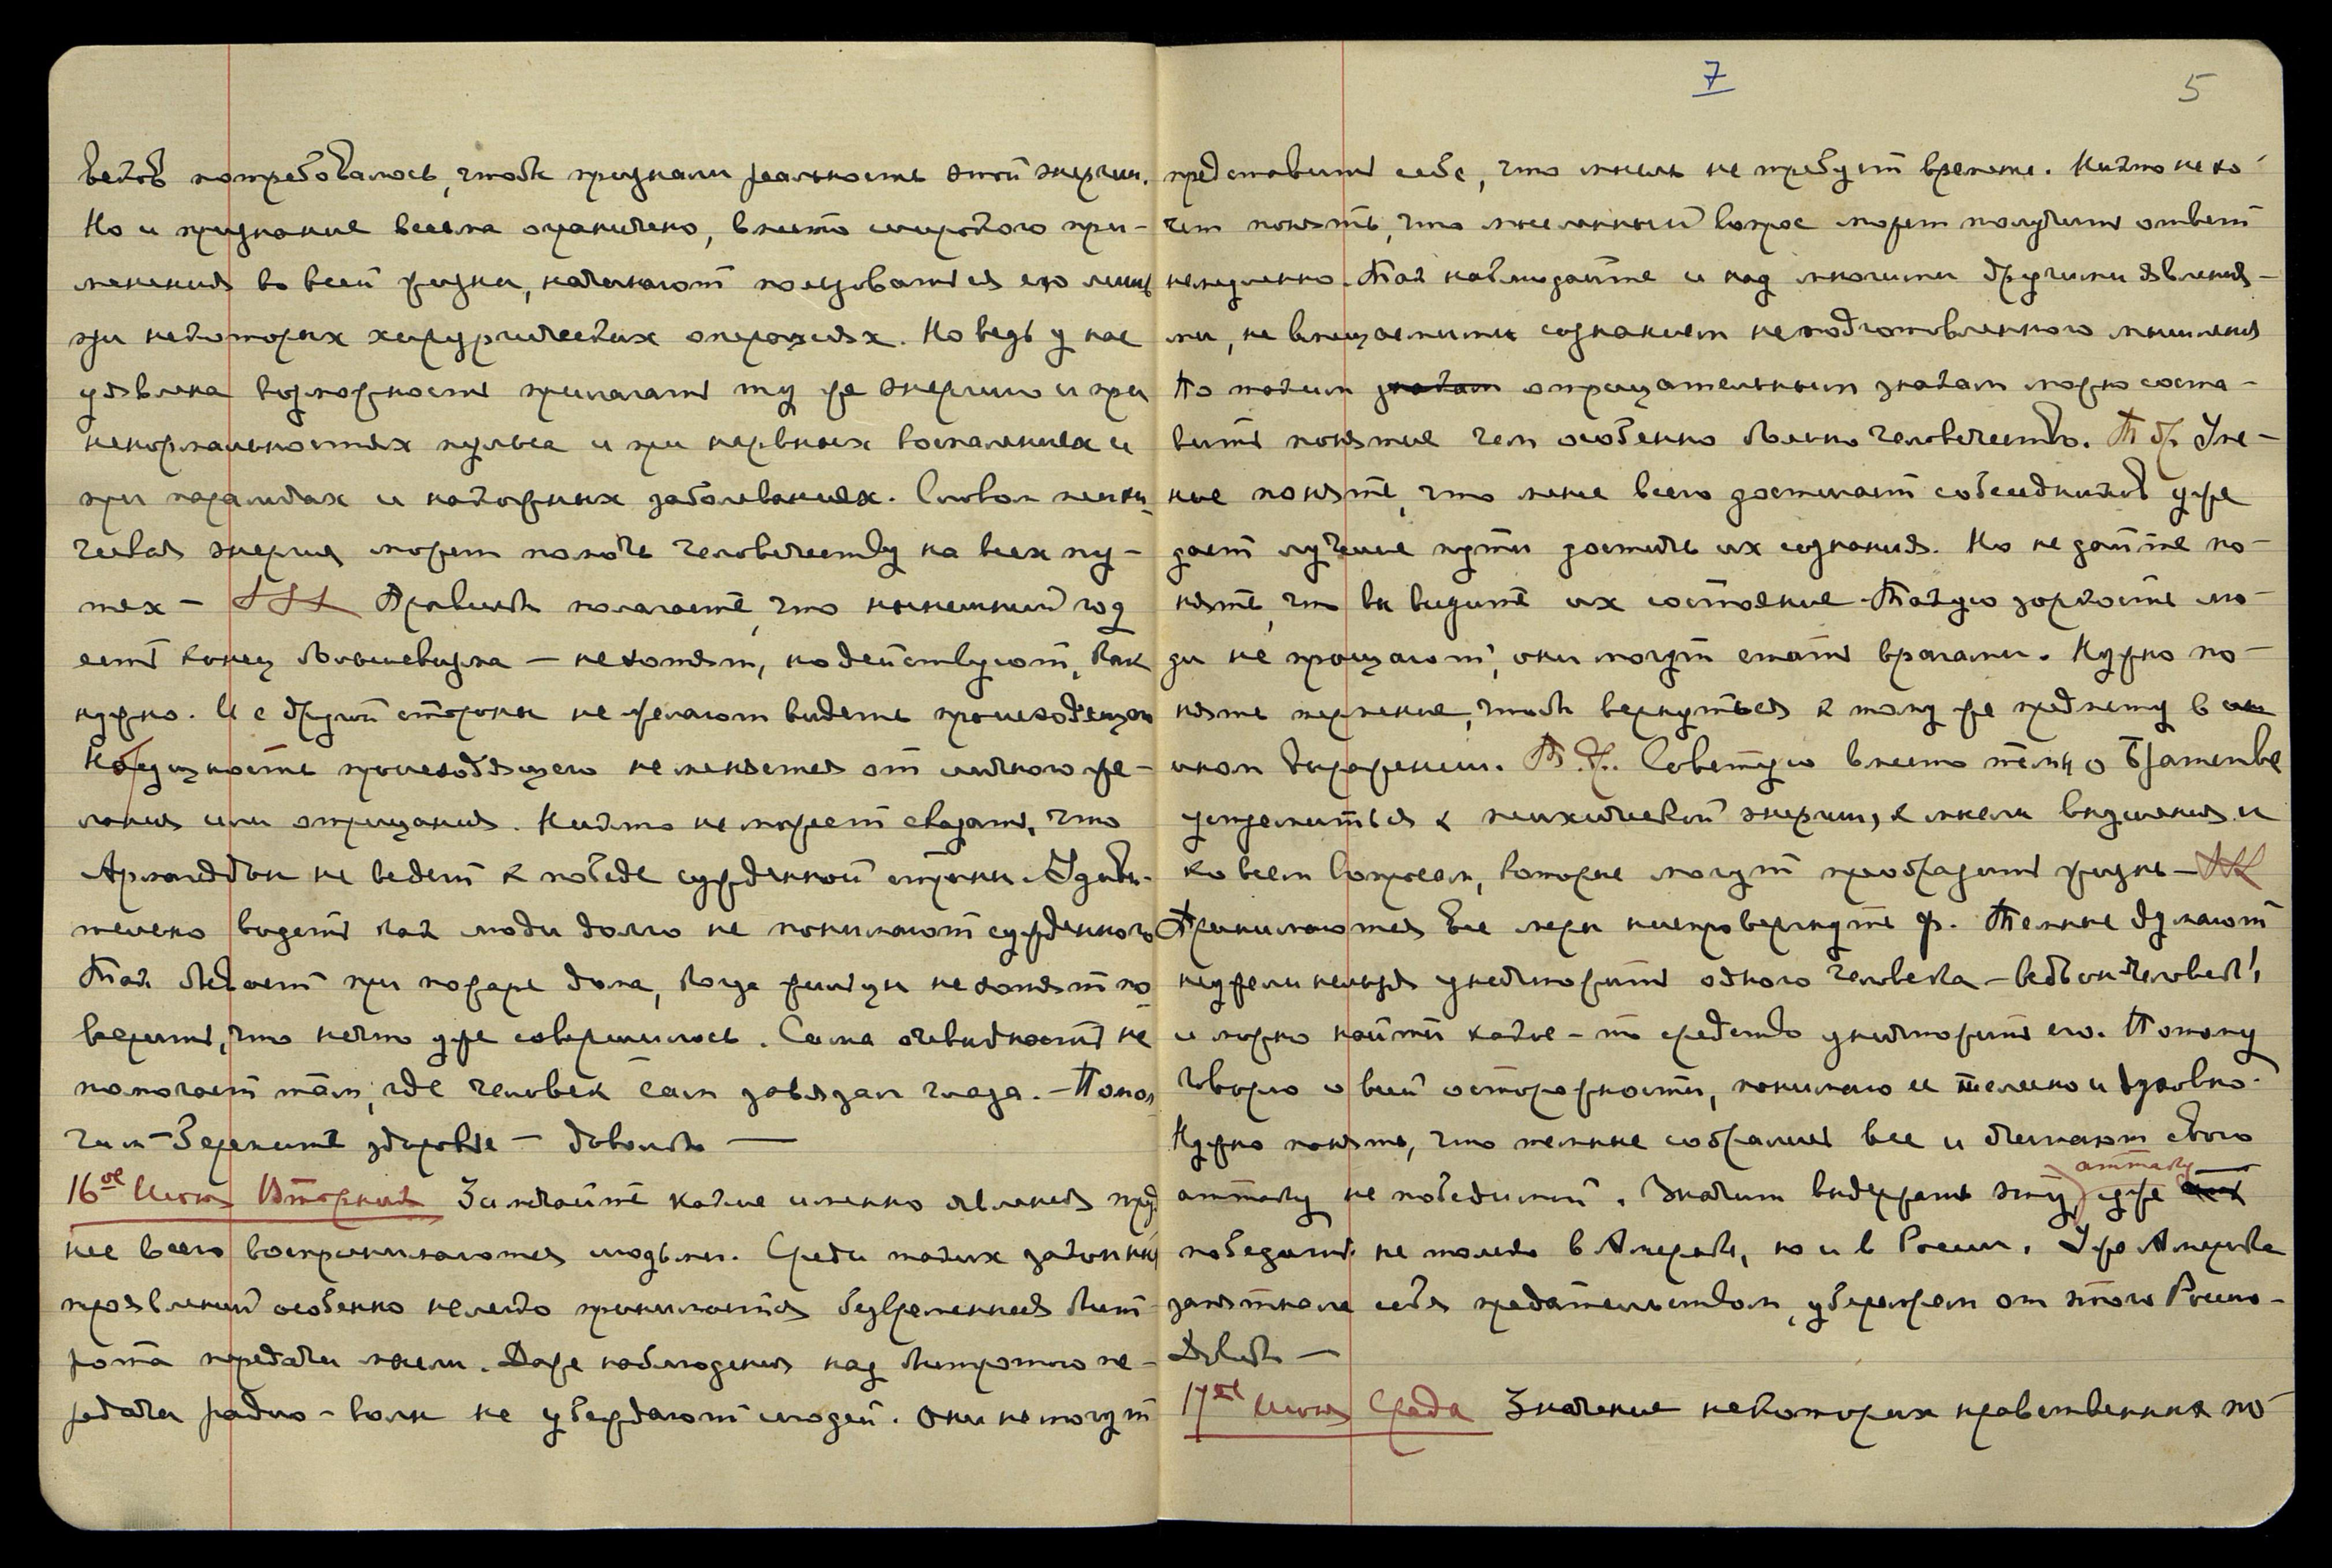 7
5
веков потребовалось, чтобы признали реальность этой энергии.
Но и признание весьма ограничено, вместо широкого при-
менения во всей жизни, начинают пользоваться ею лишь
при некоторых хирургических операциях. Но ведь у нас
уявлена возможность прилагать ту же энергию и при
ненормальностях пульса и при нервных воспалениях и
при параличах и накожных заболеваниях. Словом психи-
ческая энергия может помочь человечеству на всех пу-
тях — Правильно полагаете, что нынешний год
есть конец большевизма — не хотят, но действуют, как
нужно. И с другой стороны не желают видеть происходящего
Но сущность происходящего не меняется от личного же-
лания или отрицания. Никто не может сказать, что
Армагеддон не ведет к победе сужденной страны. Удиви-
тельно видеть как люди долго не понимают сужденного
Так бывает при пожаре дома, когда жильцы не хотят по-
верить, что нечто уже совершилось. Сама очевидность не
помогает там, где человек сам завязал глаза. — Помо-
гаем — Берегите здоровье — довольно —
16ое Июня Вторник Замечайте какие именно явления труд-
нее всего воспринимаются людьми. Среди таких законных
проявлений особенно нелегко принимается безвременная быст-
рота передачи мысли. Даже наблюдения над быстротою пе-
редачи радио-волн не убеждают людей. Они не могут
представить себе, что мысль не требует времени. Никто не хо-
чет понять, что мысленный вопрос может получить ответ
немедленно. Так наблюдайте и над многими другими явления-
ми, не вмещаемыми сознанием неподготовленного мышления
По таким знакам отрицательным знакам можно соста-
вить понятие чем особенно больно человечество. Уме-
ние понять, что менее всего достигает собеседников уже
дает лучшие пути достичь их сознания. Но не дайте по-
нять, что вы видите их состояние. Такую зоркость лю-
ди не прощают, они могут стать врагами. Нужно по-
нять терпение, чтобы вернуться к тому же предмету в
ином выражении. Советую вместо темы о Братстве
устремиться к психической энергии, к мысли внушения и
ко всем вопросам, которые могут преобразить жизнь —
Принимаются все меры ниспровергнуть Ф. Темные думают
неужели нельзя уничтожить одного человека — ведь он человек!,
и можно найти какое-то средство уничтожить его. Потому
говорю о всей осторожности, понимаю и телесно и духовно.
Нужно понять, что темные собрались все и считают свою
аттаку не победимой. Значит выдержать эту аттаку уже
победить не только в Америке, но и в России. Уже Америка
запятнала себя предательством, убережем от этого Россию —
Довольно —
17ое Июня Среда Значение некоторых нравственных по-